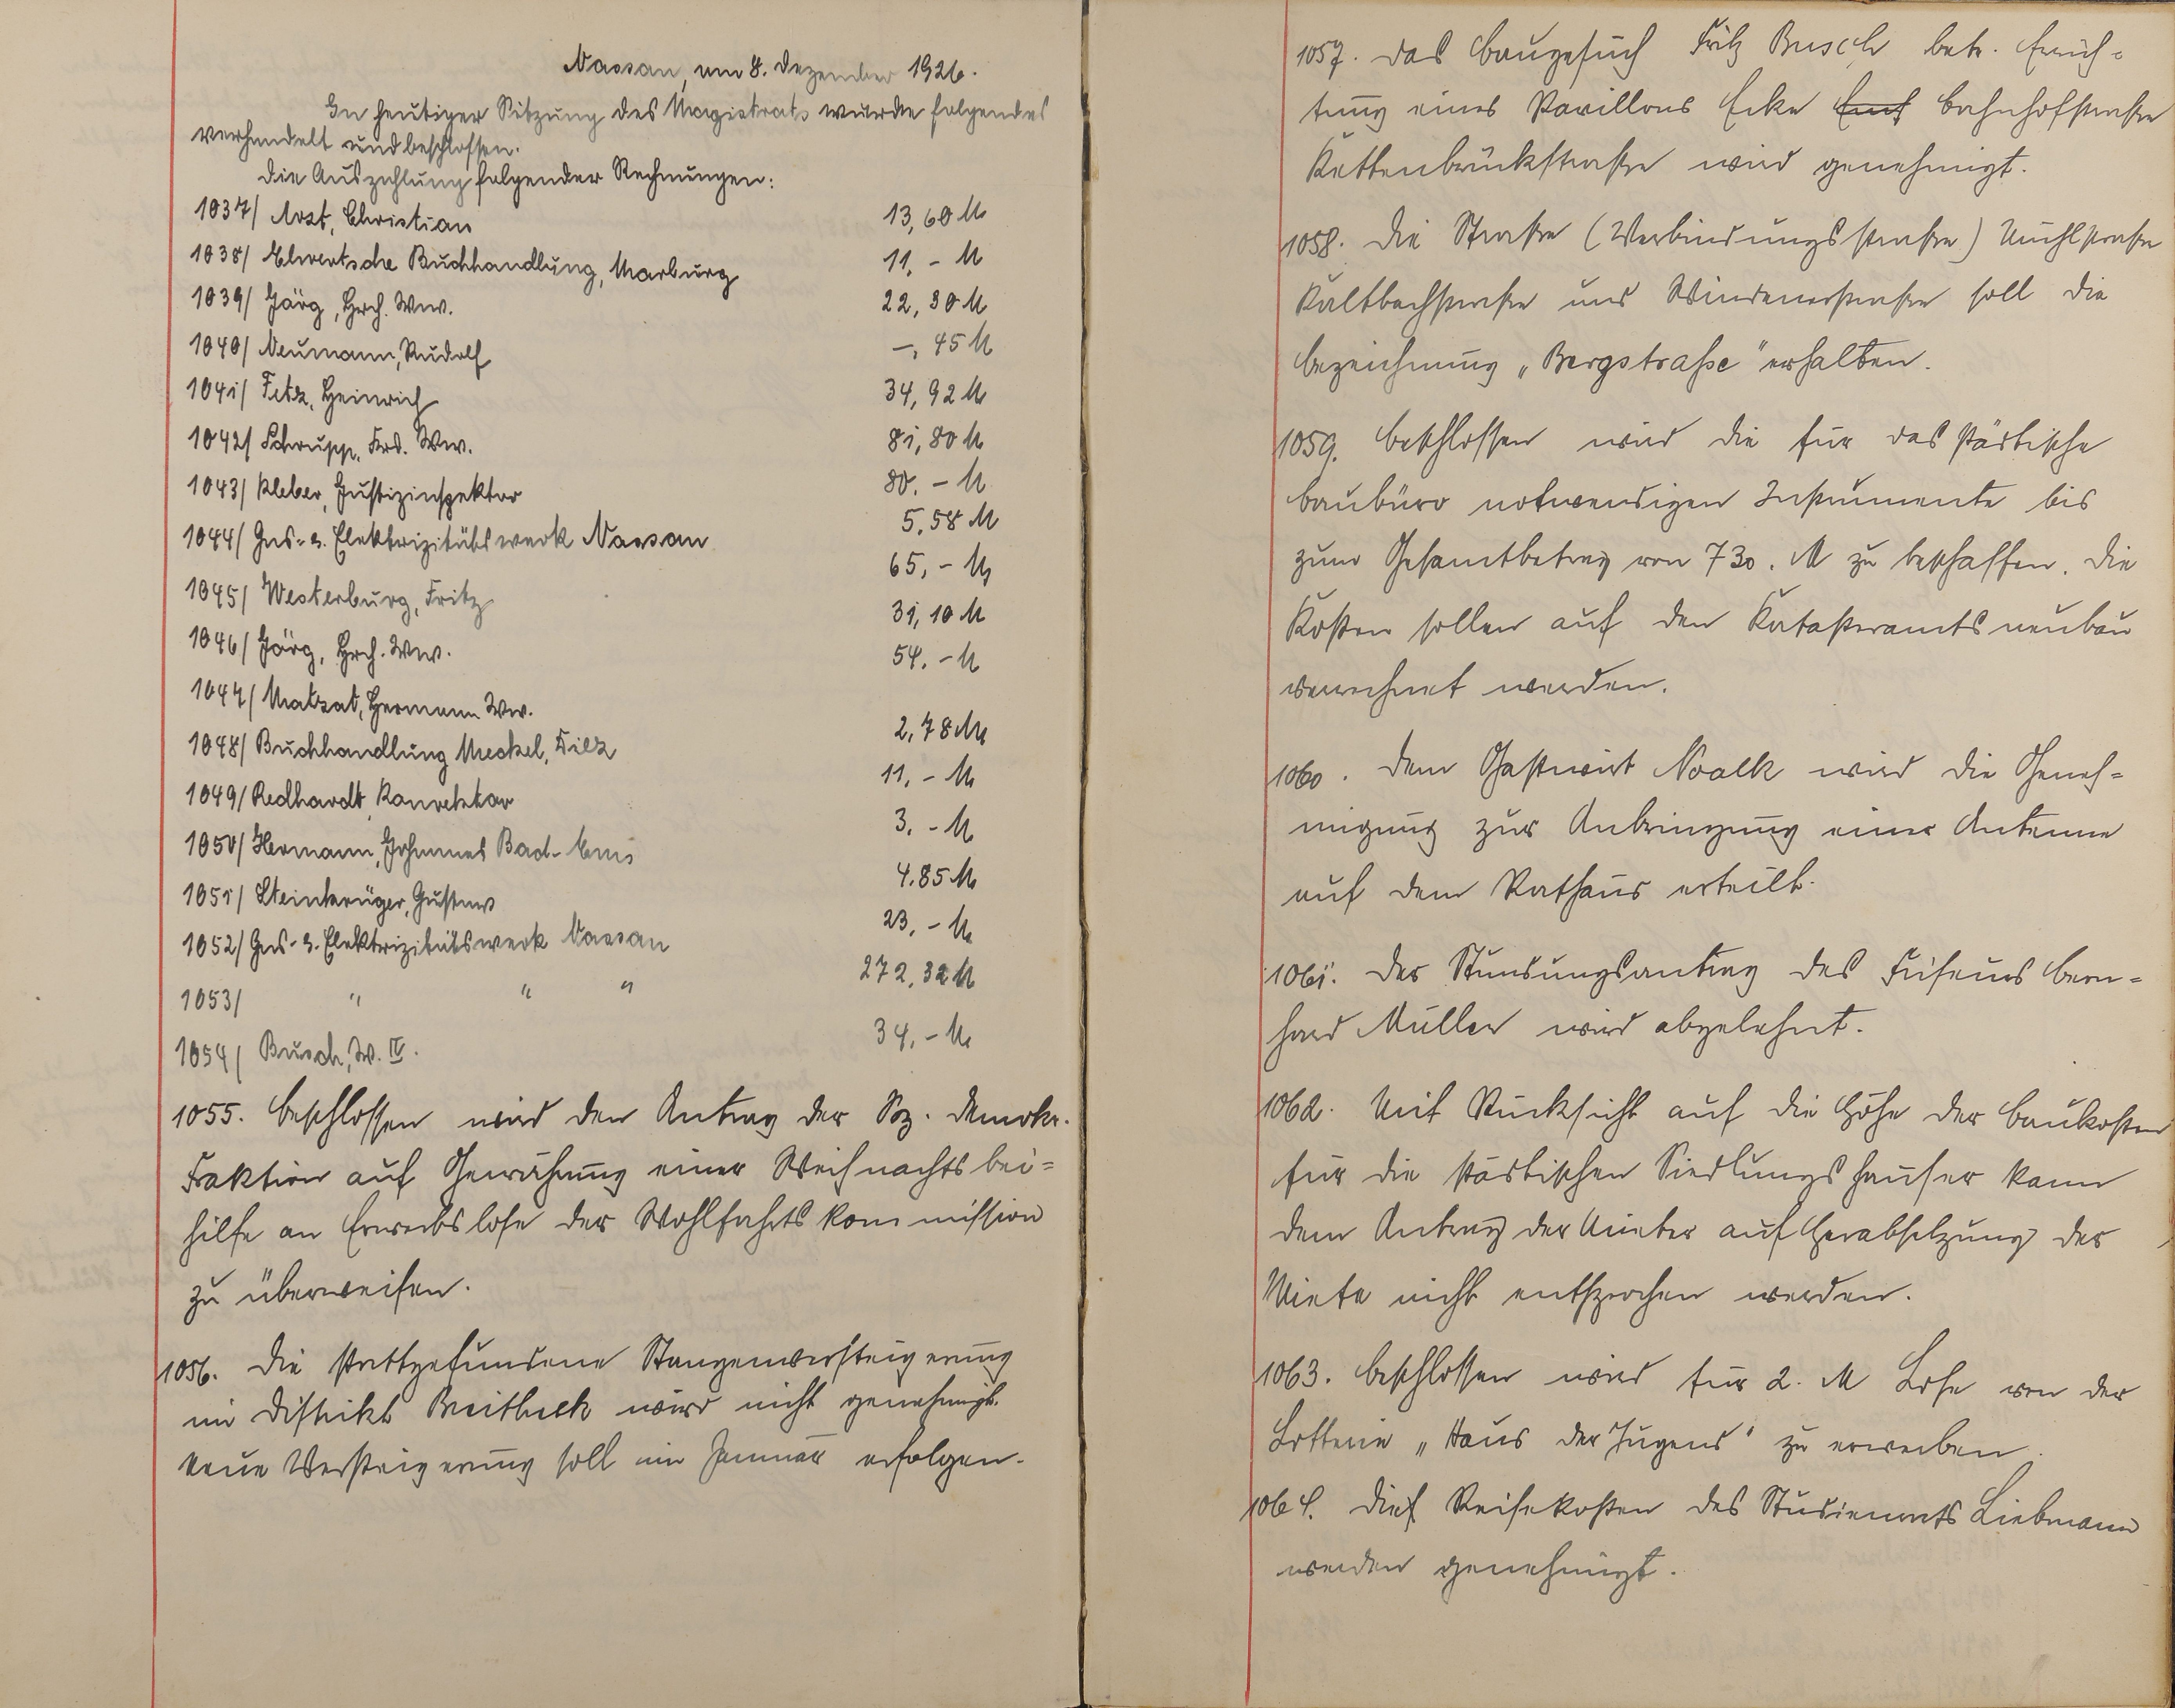 Nassau, am 8. Dezember 1926.
In heutiger Sitzung des Magistrats wurde folgendes
verhandelt und beschlossen.
Die Auszahlung folgender Rechnungen:
1037/ Arzt, Christian 13,60 M
1038/ Elwertsche Buchhandlung, Marburg 11,- M
1039/ Jörg, Hrch. Ww. 22,30 M
1040/ Neumann, Rudolf -,45 M
1041/ Fetz, Heinrich 34,92 M
1042/ Schrupp, Frd. Ww. 81,80 M
1043/ Kleber, Justizinspektor 80.- M
1044/ Gas- u. Elektrizitätswerk Nassau 5,58 M
1045/ Westerburg, Fritz 65,- M
1046/ Jörg, Hrch. Ww. 31,10 M
1047/ Matzat, Hermann Ww. 54.- M
1048/ Buchhandlung Meckel, Diez 2,78 M
1049/ Redhardt, Konrektor 11,- M
1050/ Hermann, Johannes Bad-Ems 3.- M
1051/ Steinkrüger, Gustav 4.85 M
1052/ Gas- u. Elektrizitätswerk Nassau 23,- M
1053/ " " " 272,32 M
1054/ Busch, W. IV. 34,- M
1055. Beschlossen wird den Antrag der Soz. demokr.
Fraktion auf Gewährung einer Weihnachtsbei=
hilfe an Erwerbslose der Wohlfahrtskommission
zu überweisen.
1056. Die stattgefundene Stangenversteigerung
im Distrikt Breitheck wird nicht genehmigt.
Neue Versteigerung soll im Januar erfolgen.
1057. Das Baugesuch Fritz Busch betr. Errich=
tung eines Pavillons Ecke Bahnhofstraße
Kettenbrückstraße wird genehmigt.
1058. Die Straße (Verbindungsstraße) Mühlstraße
Kaltbachstraße und Windenerstraße soll die
Bezeichnung „Bergstraße" erhalten.
1059. Beschlossen wird die für das städtische
Baubüro notwendigen Instrumente bis
zum Gesamtbetrag von 730. M zu beschaffen. Die
Kosten sollen auf den Katasteramtsneubau
verrechnet werden.
1060. Dem Gastwirt Noalk wird die Geneh=
migung zur Anbringung einer Antenne
auf dem Rathaus erteilt.
1061. Der Stundungsantrag des Friseurs Bern=
hard Müller wird abgelehnt.
1062. Mit Rücksicht auf die Höhe der Baukosten
für die städtischen Siedlungshäuser kann
dem Antrag der Mieter auf Herabsetzung der
Miete nicht entsprochen werden.
1063. Beschlossen wird für 2. M Lose von der
Lotterie „Haus der Jugend" zu erwerben.
1064. Die Reisekosten des Studienrats Liebmann
werden genehmigt.